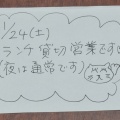 1/24(土)
ランチ貸切営業です
(夜は通常です)